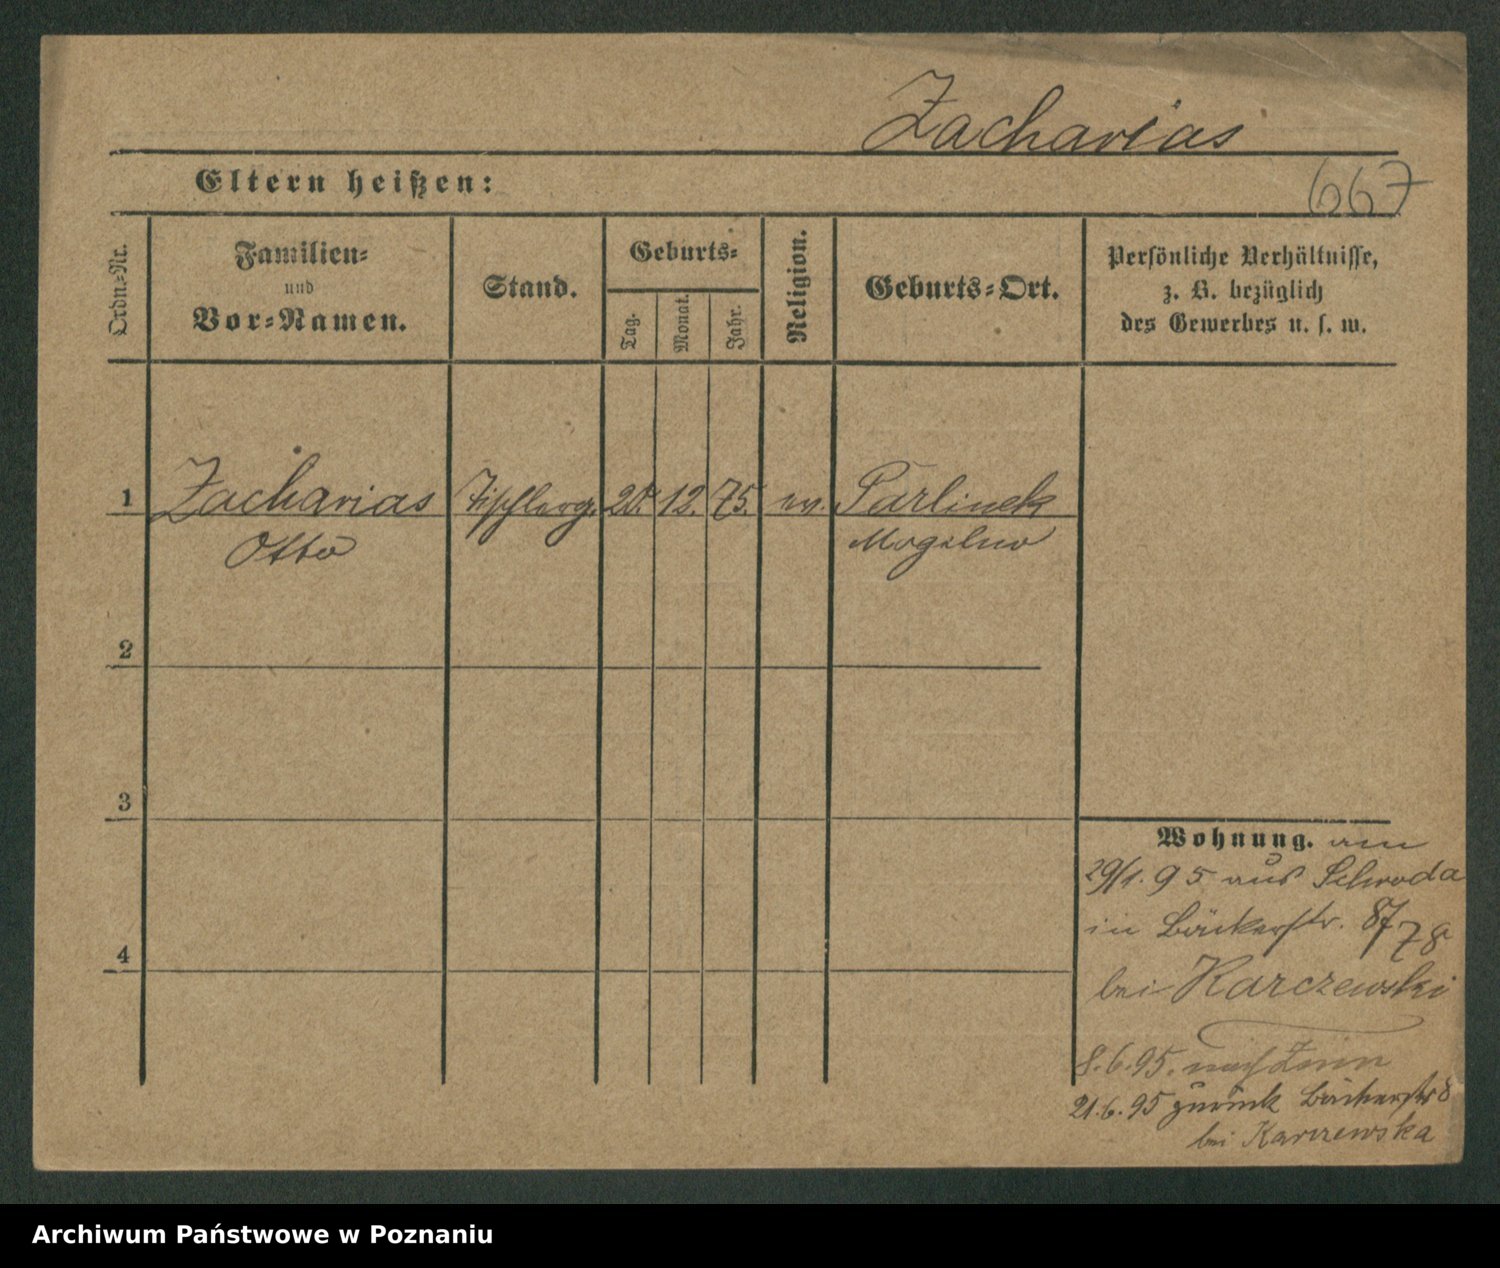 Zacharias
Eltern heißen:
667
Ordn.-Nr.
Familien-
und
Vor-Namen.
Stand.
Geburts-
Tag.
Monat.
Jahr.
Religion.
Geburts-Ort.
Persönliche Verhältnisse,
z. B. bezüglich
des Gewerbes u. s. w.
1 Zacharias Tischlerg. 20. 12. 75. ev. Parlinek
Otto Mogilno
2
3
4
Wohnung. am
29/1. 95 aus Schroda
in Bäckerstr. 8
bei Karczewski
8.6.95. nach Znin
21.6.95 zurück Bäckerstr 8
bei Karczewska
Archiwum Państwowe w Poznaniu